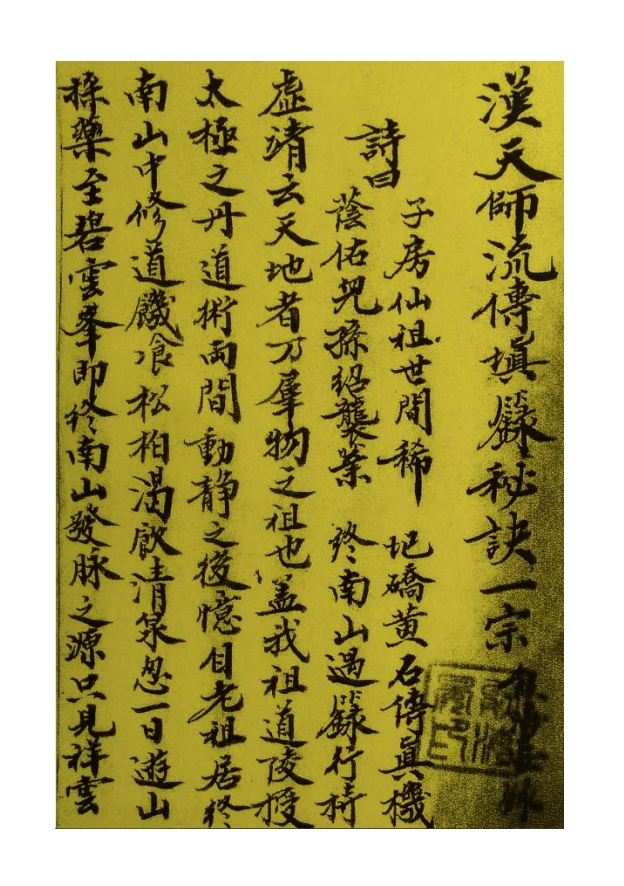 漢天師流傳填籙秘訣一宗
詩曰
子房仙祖世間稀　圯礄黄石傳真機
蔭佑兒孫紹襲業　終南山遇籙行持
虛靖云天地者乃羣物之祖也盖我祖道陵授
太極之丹道術两間動静之後憶自老祖居終
南山中修道饑飡松柏渴飲清泉忽一日遊山
採藥至碧雲峯即終南山發脉之源只見祥雲